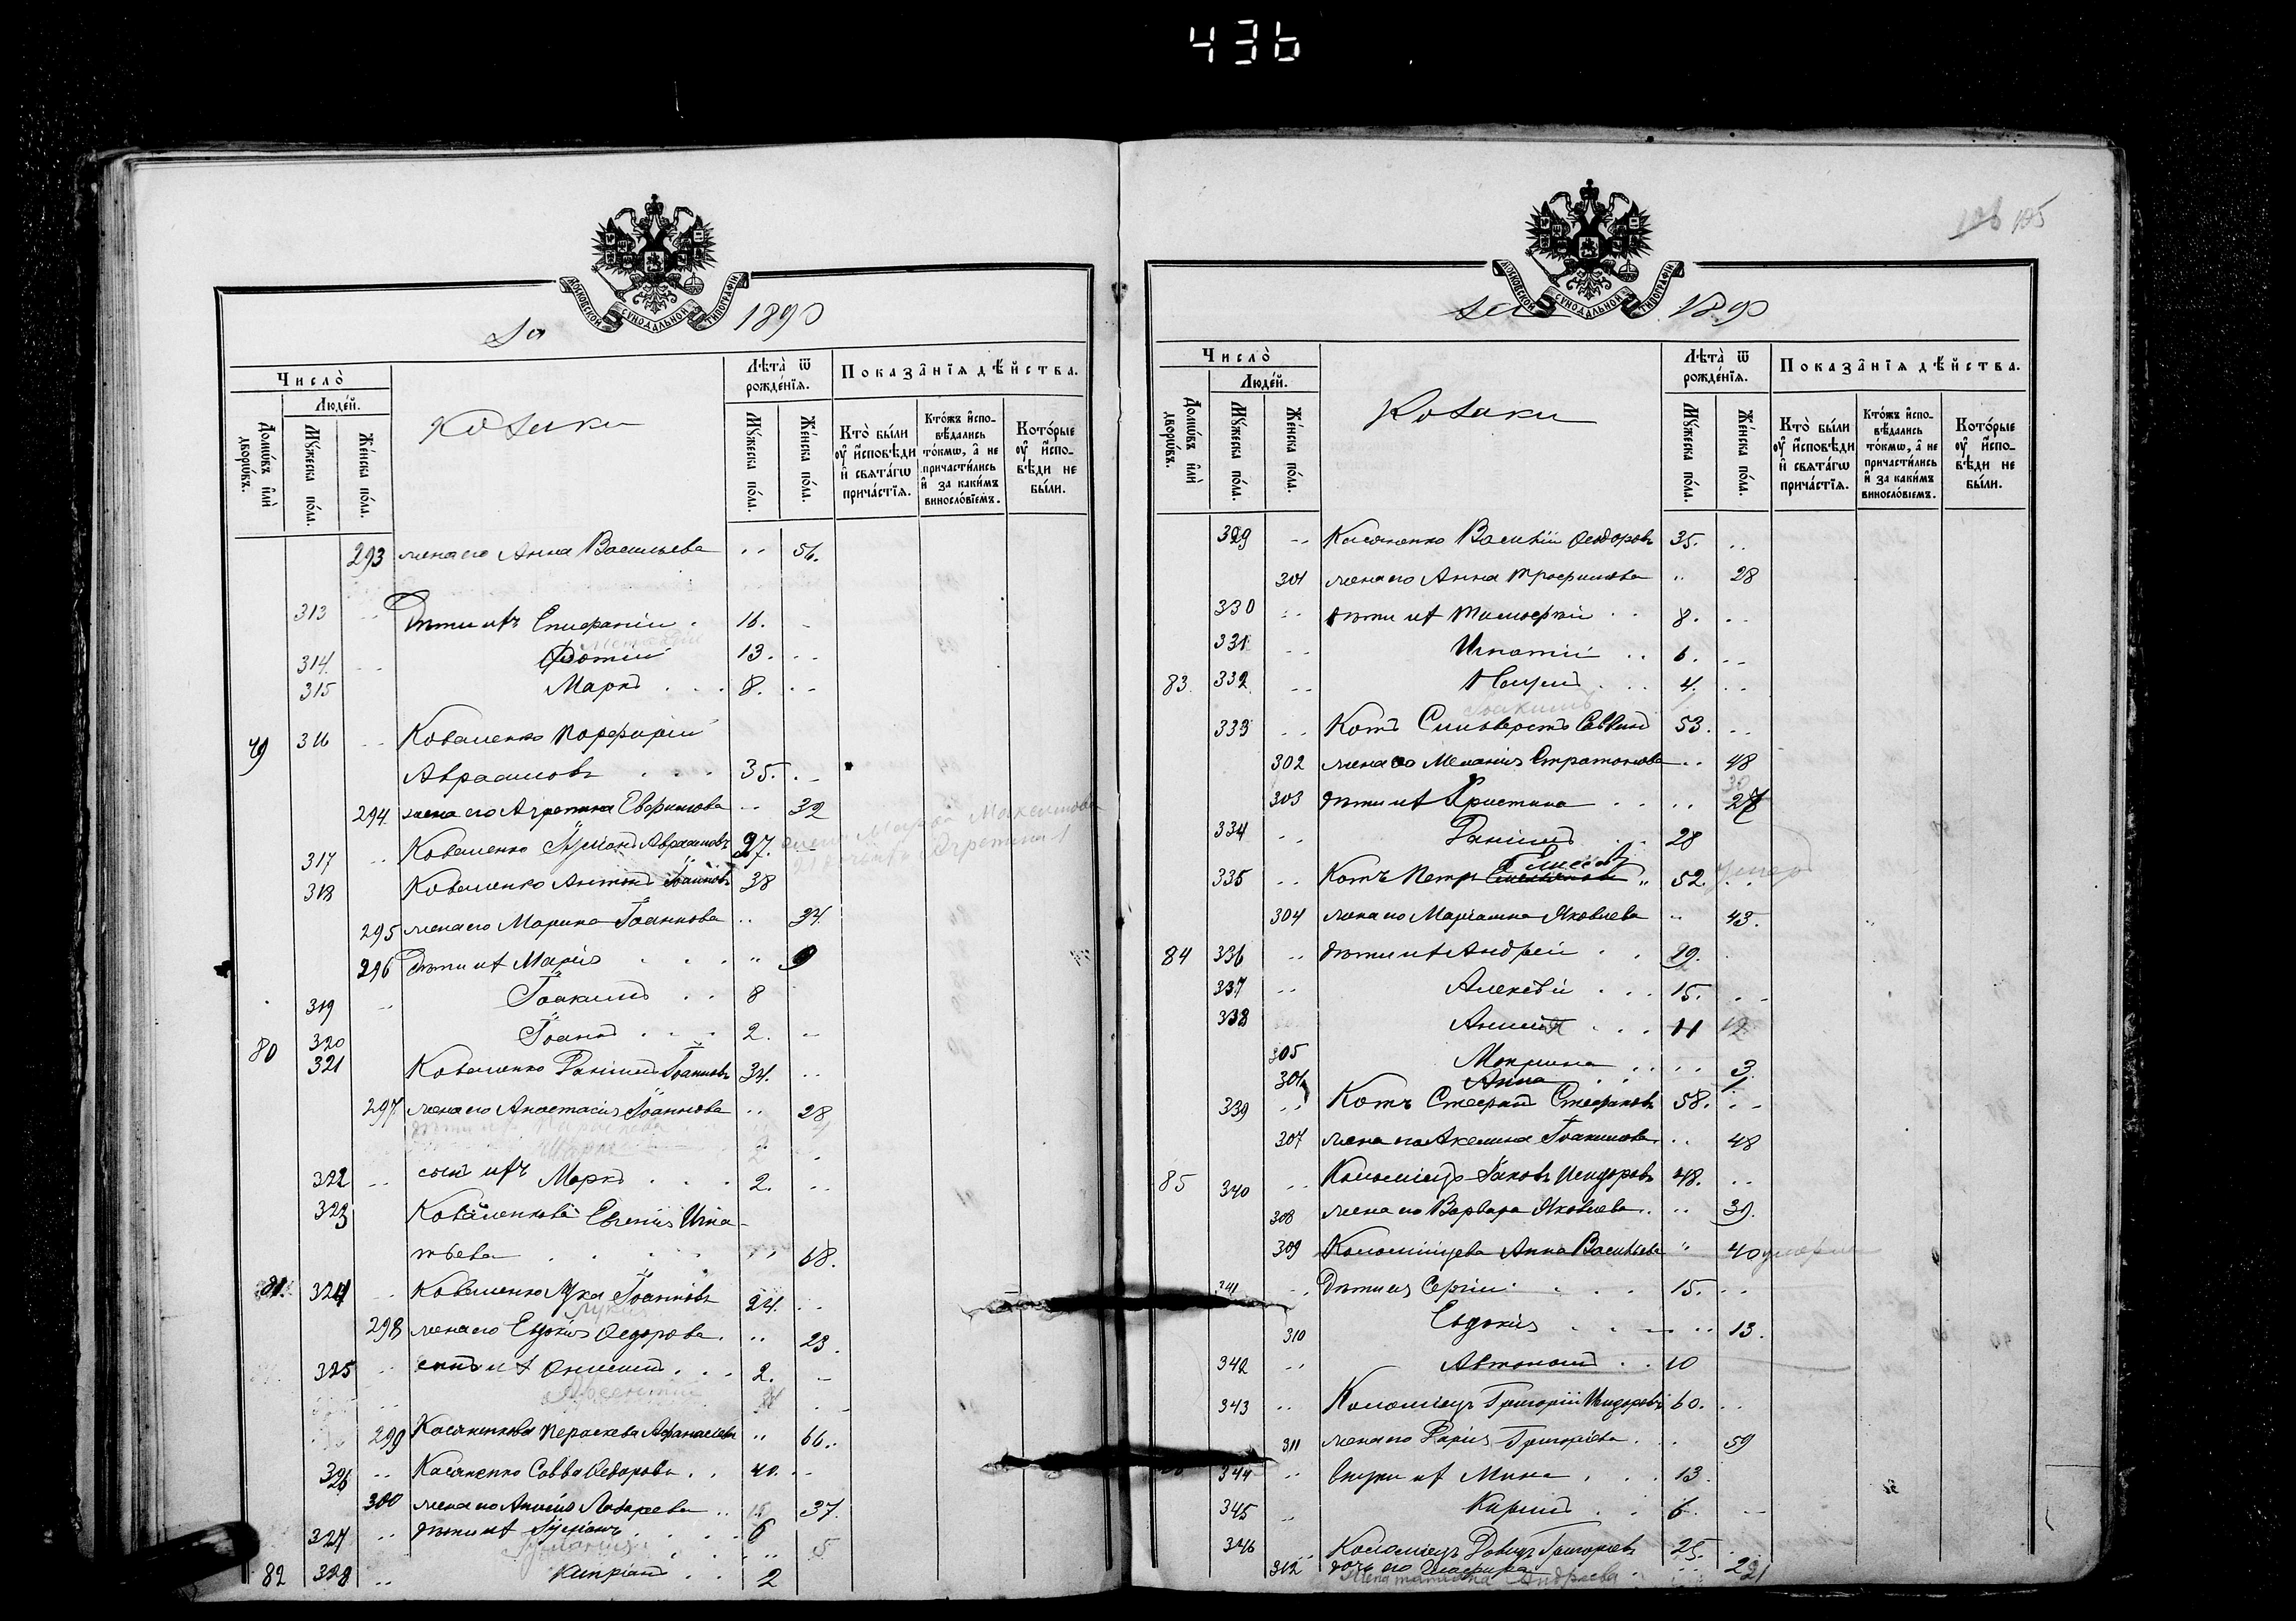 436
МОСКОВСКОЙ СУНОДАЛЬНОЙ ТИПОГРАФІИ
За 1890
Число̀
Людéй.
Домѡ́въ и҆лѝ дворѡ́въ.
Мꙋ́жеска по́ла.
Же́нска по́ла.
Козаки
Лѣта̀ ѿ рожде́нїѧ.
Мꙋ́жеска по́ла.
Же́нска по́ла.
Показа̑нїѧ дѣ́йства.
Кто̀ бы́ли ᲂу҆ и҆сповѣди и҆ свѧта́гѡ прича́стїѧ.
Кто́жъ и҆спо-вѣ́дались то́кмѡ, а҆ не причасти́лись и҆ за каки́мъ винослóвїемъ.
Кото́рые ᲂу҆ и҆спо-вѣди не бы́ли.
293 жена его Анна Васильева .. 56.
313 .. Дѣти ихъ Епифаній . 16. ..
314 .. Фотій 13. ..
315 Маркъ . . . 8. ..
79 316 .. Коваленко Порфирій
Авраамовъ . . . 35. ..
294 жена его Агрепина Евфимова .. 32
317 .. Коваленко Іуліанъ Авраамовъ 27.
318 Коваленко Антонъ Іоанновъ 38
295 жена его Марина Іоаннова .. 34.
296 Дѣти ихъ Марія . . . .. 9
319 .. Іоакимъ . . 8
320 Іоаннъ . . . 2. ..
80 321 Коваленко Даніилъ Іоанновъ 34. ..
297 жена его Анастасія Іоаннова .. 28
322 .. сынъ ихъ Маркъ . . . 2. ..
323 Коваленкова Евгенія Игна-
тьева . . . . .. 68.
81. 324 .. Коваленко Лука Іоанновъ 24. ..
298 жена его Евдокія Ѳедорова. .. 23.
325 .. сынъ ихъ Онисимъ . . . 2. ..
299 Касяненкова Параскева Афанасіева .. 66.
326 .. Касяненко Савва Ѳедоровъ . . 40. ..
300 жена его Анисія Лазарева .. 37.
327 .. дѣти ихъ Іуліанъ . . . 6
82 328 .. Кипріанъ . . 2
105
МОСКОВСКОЙ СУНОДАЛЬНОЙ ТИПОГРАФІИ
за 1890
Число̀
Людéй.
Домѡ́въ и҆лѝ дворѡ́въ.
Мꙋ́жеска по́ла.
Же́нска по́ла.
Козаки
Лѣта̀ ѿ рожде́нїѧ.
Мꙋ́жеска по́ла.
Же́нска по́ла.
Показа̑нїѧ дѣ́йства.
Кто̀ бы́ли ᲂу҆ и҆сповѣди и҆ свѧта́гѡ прича́стїѧ.
Кто́жъ и҆спо-вѣ́дались то́кмѡ, а҆ не причасти́лись и҆ за каки́мъ винослóвїемъ.
Кото́рые ᲂу҆ и҆спо-вѣди не бы́ли.
329 .. Касяненко Василій Ѳеодоровъ 35. ..
301 жена его Анна Трофимова .. 28
330 .. дѣти ихъ Тимоѳей . . 8. ..
331 .. Игнатій . . 6. ..
83. 332 .. 4. ..
Іоакимъ
333 .. Котъ Сильверстъ Саввинъ 53. ..
302 жена его Меланія Стратонова .. 48
303 дѣти ихъ Христина . . ..
334 .. Даніилъ . . 28
335 .. Котъ Петръ 52. умеръ
304 жена его Маріамна Яковлева .. 43.
84 336 .. дѣти ихъ Андрей . . 29.
337 .. Алексѣй . . . 15. ..
338 . . . 11 12
305 Мокрина . . .. 3.
Анна . . 1.
339 .. Котъ Стефанъ Стефановъ 58. ..
307 жена его Акелина Іоакимова .. 48
85 340 .. Коломіецъ Іаковъ Исидоровъ 48. ..
308 жена его Варвара Яковлева .. .. 39.
309 Коломійцева Анна Васильева .. 40 умерла
341 .. Дѣти ея Сергій . . . 15. ..
310 Евдокія . . . .. 13.
342 .. Автономъ . . 10
343 .. Коломіецъ Григорій Исидоровъ 60. ..
311 жена его Дарія Григоріева . . 59
344 .. внуки ихъ Мина . . . 13.
345 .. Кирилъ . . 6. ..
346 .. Коломіецъ Давидъ Григоріевъ 25.
312 дочь его Глафира . .. 2